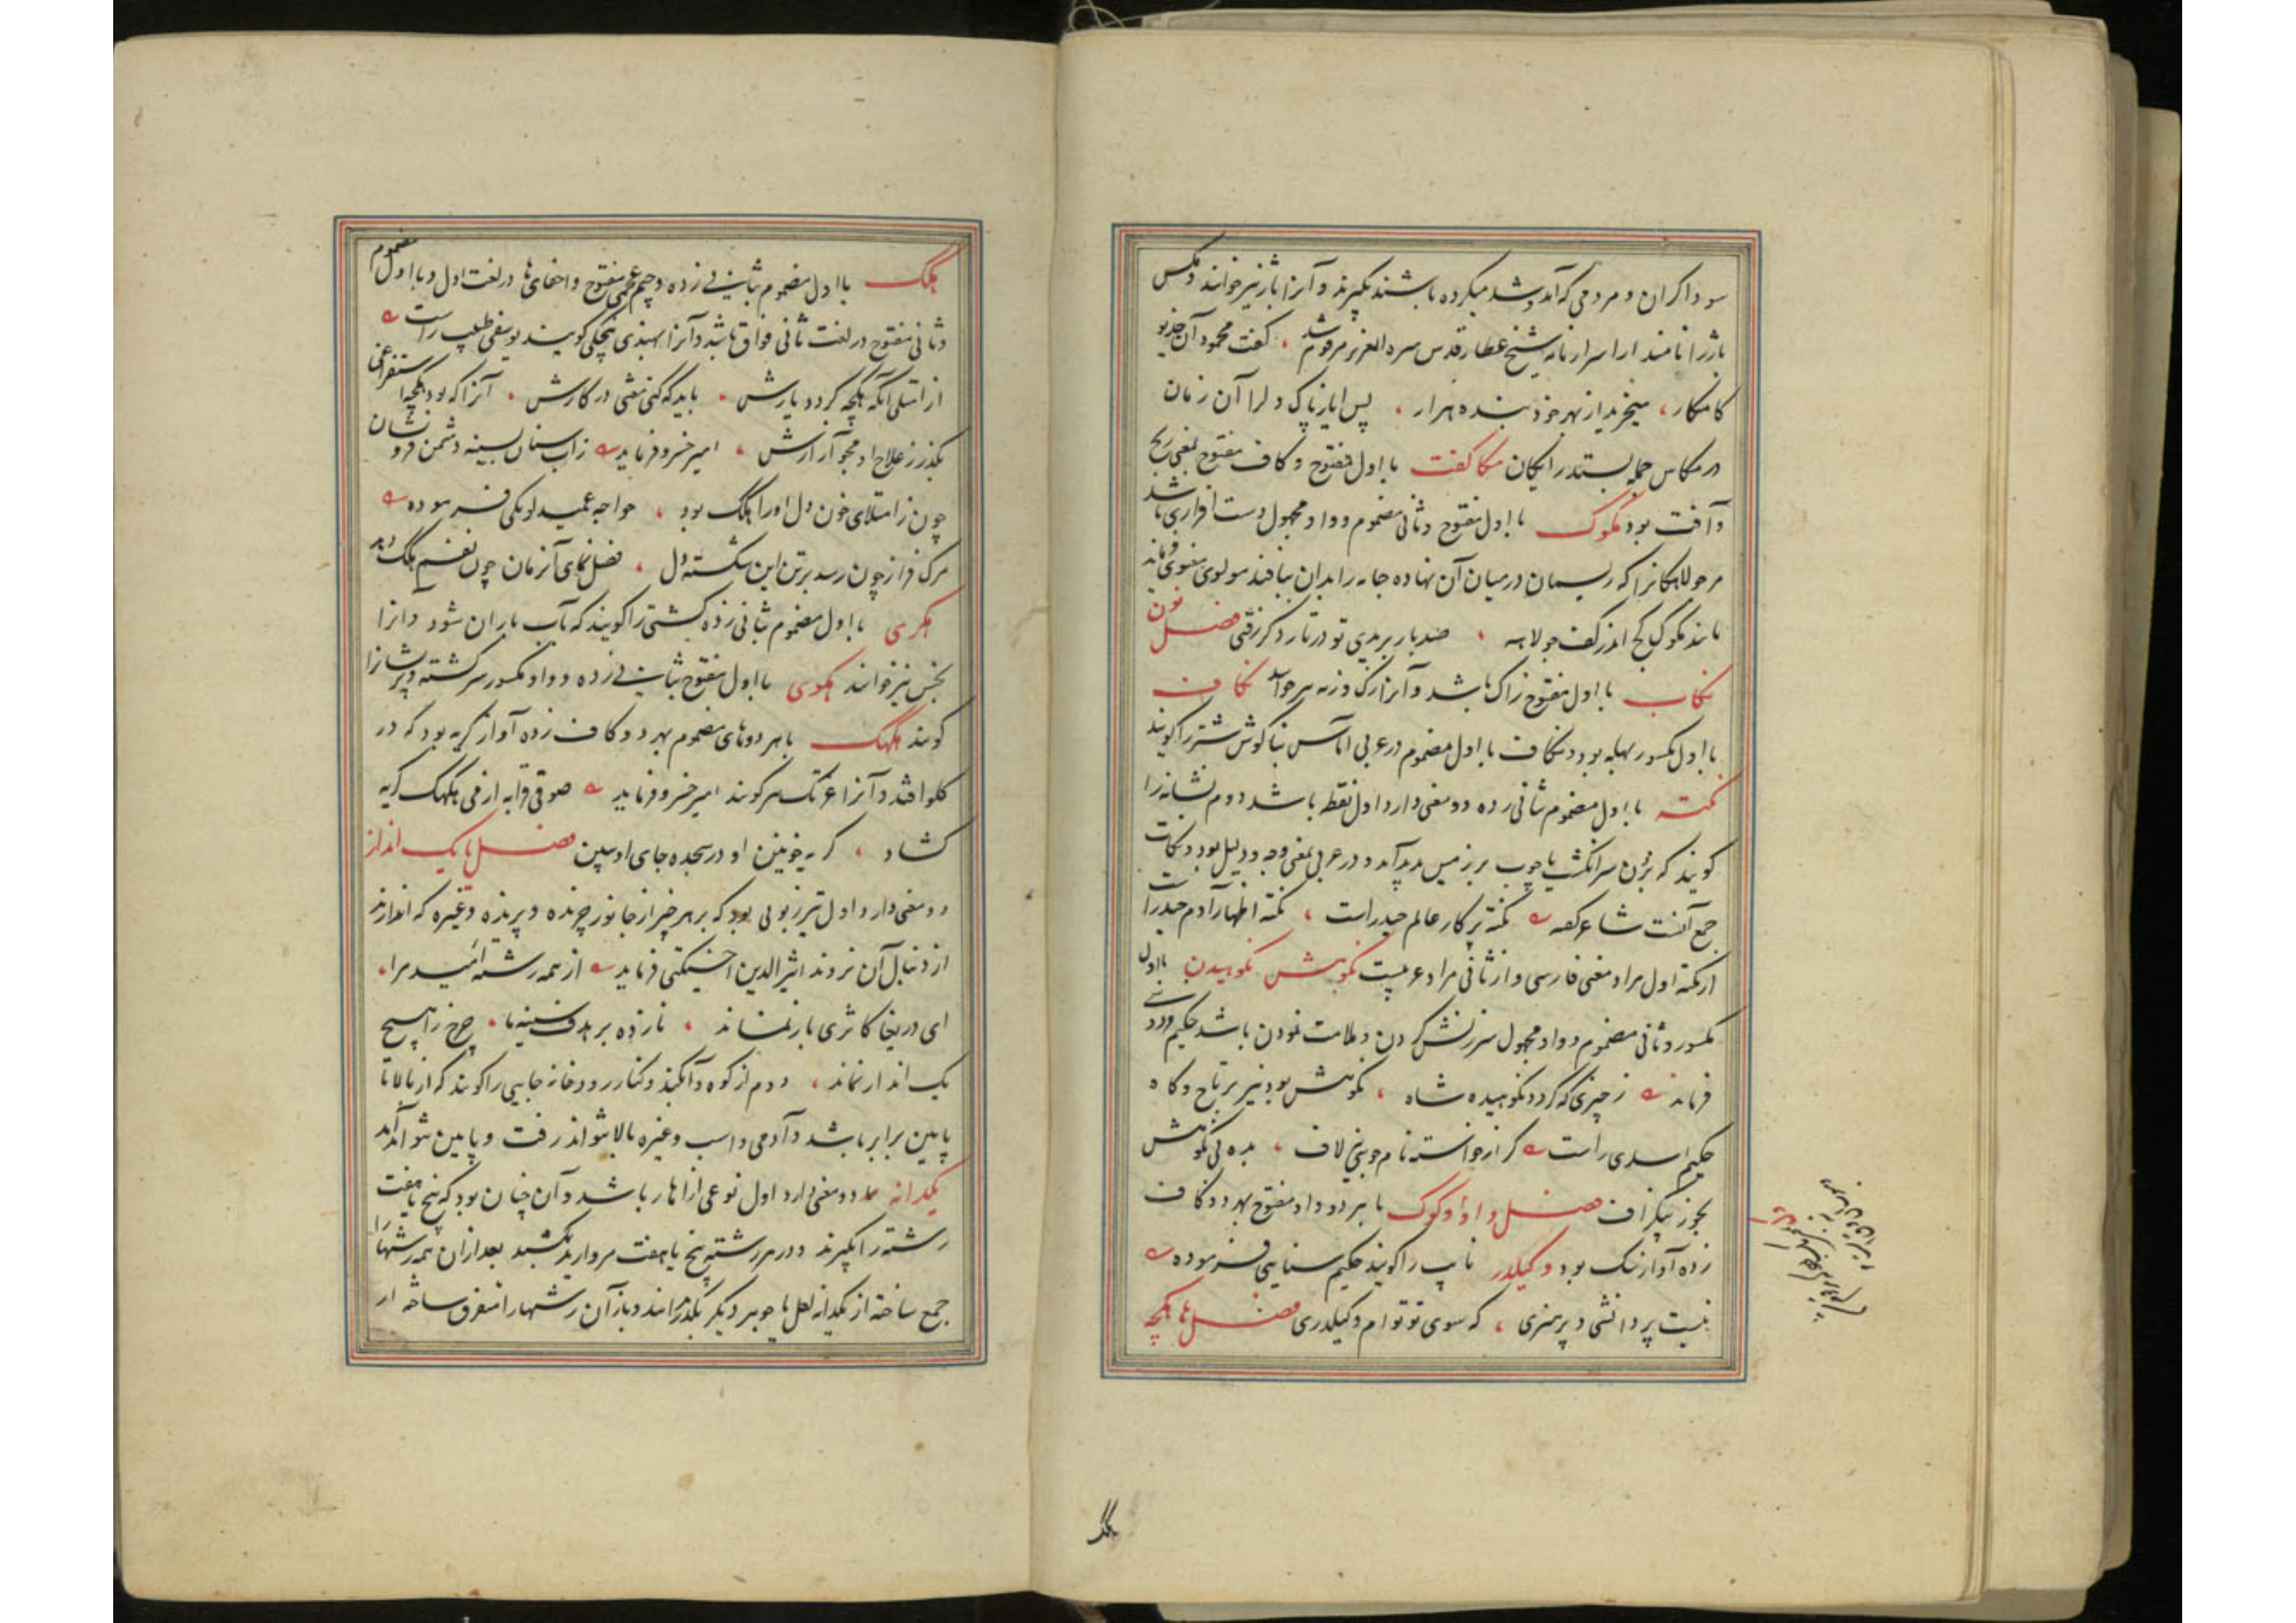 سوداکران و مردمی که آمد و شد میکرده باشند بکیرند و آنرا باژ نیز خوانند و مکس
باژ را نامند از اسرار نامه شیخ عطار قدس سره العزیز مرقوم شد ، کفت محمود آن خدیو
کامکار ، میخریدند از بهر خود بنده هزار ، پس ایاز پاک دل را آن زمان
در مکاس جمله بستند رایکان مکاکفت با اول مفتوح و کاف مفتوح بمعنی رنج
و آفت بود مکوک با اول مفتوح و ثانی مضموم و واو مجهول دست افزاری باشد
مر جولاهکانرا که ریسمان در میان آن نهاده جامه را بدان ببافند مولوی معنوی فرماید
مانند مکوک کج اندر کف جولاهه ، صد بار بریدی تو در تار دکر رفتی فصل نون
نکاب با اول مفتوح زاک باشد و آنرا زک و زمه نیز خوانند نکاف
با اول مکسور بهله بود و نکاف با اول مضموم در عربی اماس بناکوش شتر را کویند
نکته با اول مضموم بثانی زده دو معنی دارد اول نقطه باشد دوم نشانه را
کویند که بزدن سر انکشت یا چوب بر زمین پدید آید و در عربی بمعنی وجه و دلیل بود و نکات
جمع آنست شاعر کفته نکته پرکار عالم حیدر است ، نکته اظهار آدم حیدر است
از نکته اول مراد معنی فارسی و از ثانی مراد عربیست نکوهش نکوهیدن با اول
مکسور و ثانی مضموم و واو مجهول سرزنش کردن و ملامت نمودن باشد حکیم فردوسی
فرماید ز چیزی که کردد نکوهیده شاه ، نکوهش بود نیز بر تاج و کاه
حکیم اسدی راست کر از خواسته نام جویی لاف ، بده بی نکوهش
بخور بیکزاف فصل واو وکوک با هر دو واو مفتوح بهر دو کاف
زده آواز سک بود وکیلدر نایب را کویند حکیم سنایی فرموده
نیست پر دانشی و پرهنری ، که سوی تو توام وکیلدری فصل ها هکچه
هکک
هکک با اول مضموم بثانی زده و جیم عجمی مفتوح و اخفای ها در لغت اول و با اول مضموم
و ثانی مفتوح در لغت ثانی فواق باشد و آنرا بهندی هچکی کویند یوسفی طبیب راست
از امتلی آنکه هکچه کردد یارش ، باید که کنی متی در کارش ، آنرا که بود هکچه استفراغی
بکذر ز علاج او مجو آزارش ، امیر خسرو فرماید ز آب سنان بسینه دشمن فرو نشان
چون ز امتلای خون دل او را هکک بود ، خواجه عمید لوبکی فرموده
مرک فراز چون رسد بر تن این شکسته دل ، فضل نمای آنزمان چون نفسم هکک دهد
هکری با اول مضموم بثانی زده کشتی را کویند که بآب باران شود و آنرا
بخس نیز خوانند هکوی با اول مفتوح بثانی زده و واو مکسور سرکشته و پریشانرا
کویند هکهک با هر دو های مضموم بهر دو کاف زده آواز کریه بود که در
کلو افتد و آنرا غژنک نیز کویند امیر خسرو فرماید صوفی قرابه از فی هکهک کریه
کشاد ، کریه خونین او در سجده جای او ببین فصل یا یک انداز
دو معنی دارد اول تیر زبونی بود که بر هر چیز از جانور چرنده و پرنده و غیره که اندازند
از دنبال آن نروند اثیرالدین اخسیکتی فرماید از همه رشته امید مرا ،
ای دریغا کاثری باز نماند ، نازده بر هدف سینه ما ، چرخ را هیچ
یک انداز نماند ، دوم از کوه و آبکند و کنار رودخانه جایی را کویند که از بالا تا
پایین برابر باشد و آدمی و اسب و غیره بالا نتواند رفت و پایین نتواند آمد
یکدانه دو معنی دارد اول نوعی از هار باشد و آن چنان بود که پنج یا هفت
رشته را بکیرند و در هر رشته پنج یا هفت مروارید بکشند بعد از آن همه رشتها را
جمع ساخته از یکدانه لعل یا جوهر دیکر بکذرانند و باز آن رشتها را متفرق ساخته از